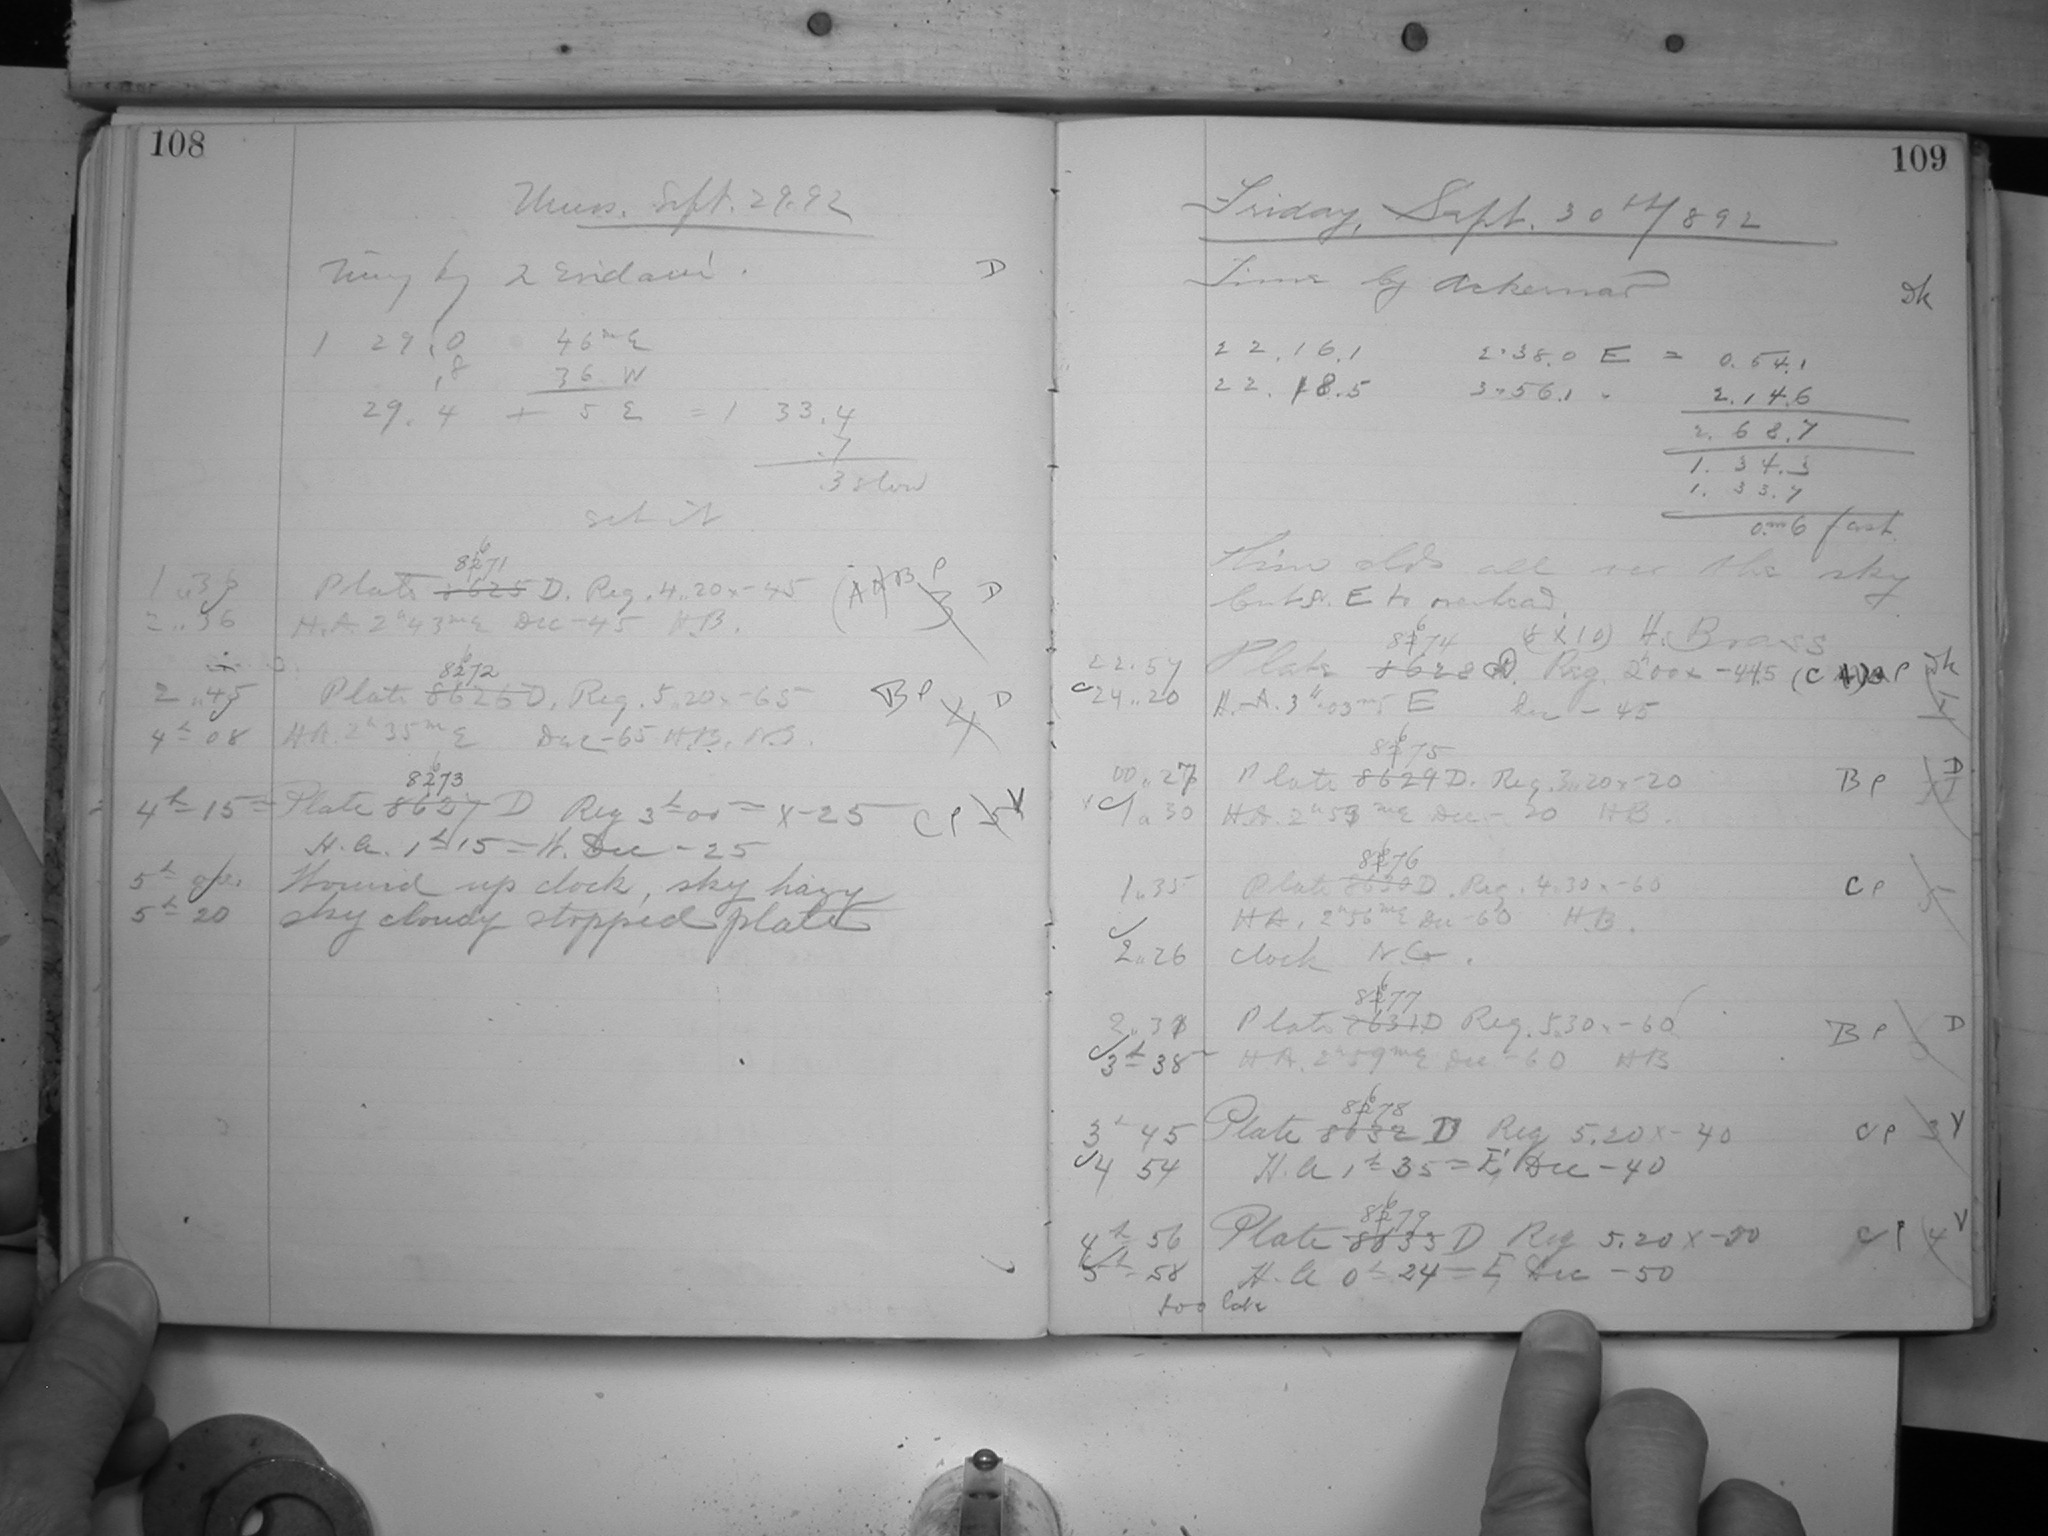 108
Thurs. Sept. 29. 92
Time by 2 Eridani. D
1 29.0 46m E
.8 36 W
29.4 + 5 E = 1 33.4
.7
.3 slow
set it
8671
1..36 Plate 8625 D. Reg. 4..20 x -45 (AA) BP D
2..36 H.A. 2h 43m E Dec -45 H.B.
8672
2..45 Plate 8626 D. Reg. 5..20 x -65 BP 4 D
4h 08 H.A. 2h 35m E Dec -65 H.B. N.G.
8673
4h 15 Plate 8627 D Reg 3h 00 x -25 CP 5 V
H.A. 1h 15 W. Dec -25
5h Wound up clock, sky hazy
5h 20 sky cloudy stopped plate
109
Friday, Sept. 30th 1892
Time by Achernar Dk
22.16.1 2.38.0 E = 0.54.1
22.18.5 3..56.1 " 2.14.6
2.68.7
1.34.3
1.33.7
0m6 fast
Thin clds all over the sky
but S. E to overhead.
8674 (8x10) H. Brass
22.57 Plate 8628 D. Reg. 2h00 x -445 (CA) P Dk
24..20 H.A. 3h 03m E Dec -45
8675
00..27 Plate 8629 D. Reg. 3..20 x -20 BP D
1..30 H.A. 2h 53m E Dec - 20 HB.
8676
1..35 Plate 8630 D. Reg. 4.30 x -60 CP 5
H.A. 2h 56m E Dec -60 H.B.
2..26 clock N.G.
8677
2..31 Plate 8631 D Reg. 5.30 x -60 BP D
3h 38 H.A. 2h 59m E Dec -60 HB
8678
3h 45 Plate 8632 D Reg 5.20 x -40 CP 3 V
4 54 H.A 1h 35 E, Dec -40
8679
4h 56 Plate 8633 D Reg 5.20 x -50 CP 4 V
5h 58 H.A 0h 24 E, Dec -50
too late